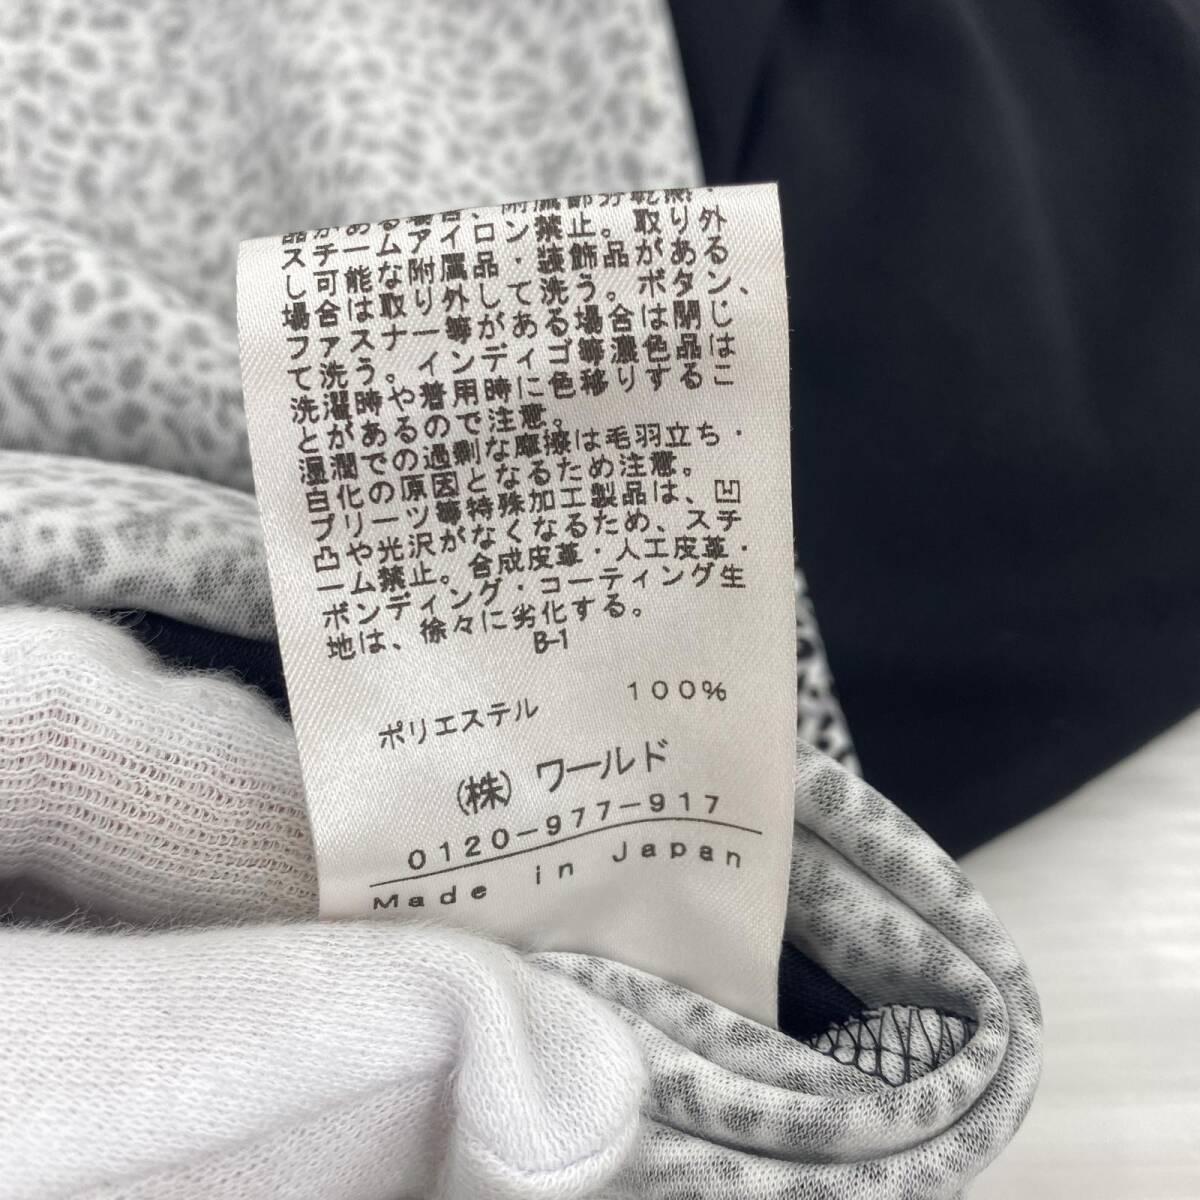 品がある場合、附属部分乾燥・
スチームアイロン禁止。取り外
し可能な附属品・装飾品がある
場合は取り外して洗う。ボタン、
ファスナー等がある場合は閉じ
て洗う。インディゴ等濃色品は
洗濯時や着用時に色移りするこ
とがあるので注意。
湿潤での過剰な摩擦は毛羽立ち・
白化の原因となるため注意。
プリーツ等特殊加工製品は、凹
凸や光沢がなくなるため、スチ
ーム禁止。合成皮革・人工皮革・
ボンディング・コーティング生
地は、徐々に劣化する。
B-1
ポリエステル 100%
(株) ワールド
0120-977-917
Made in Japan